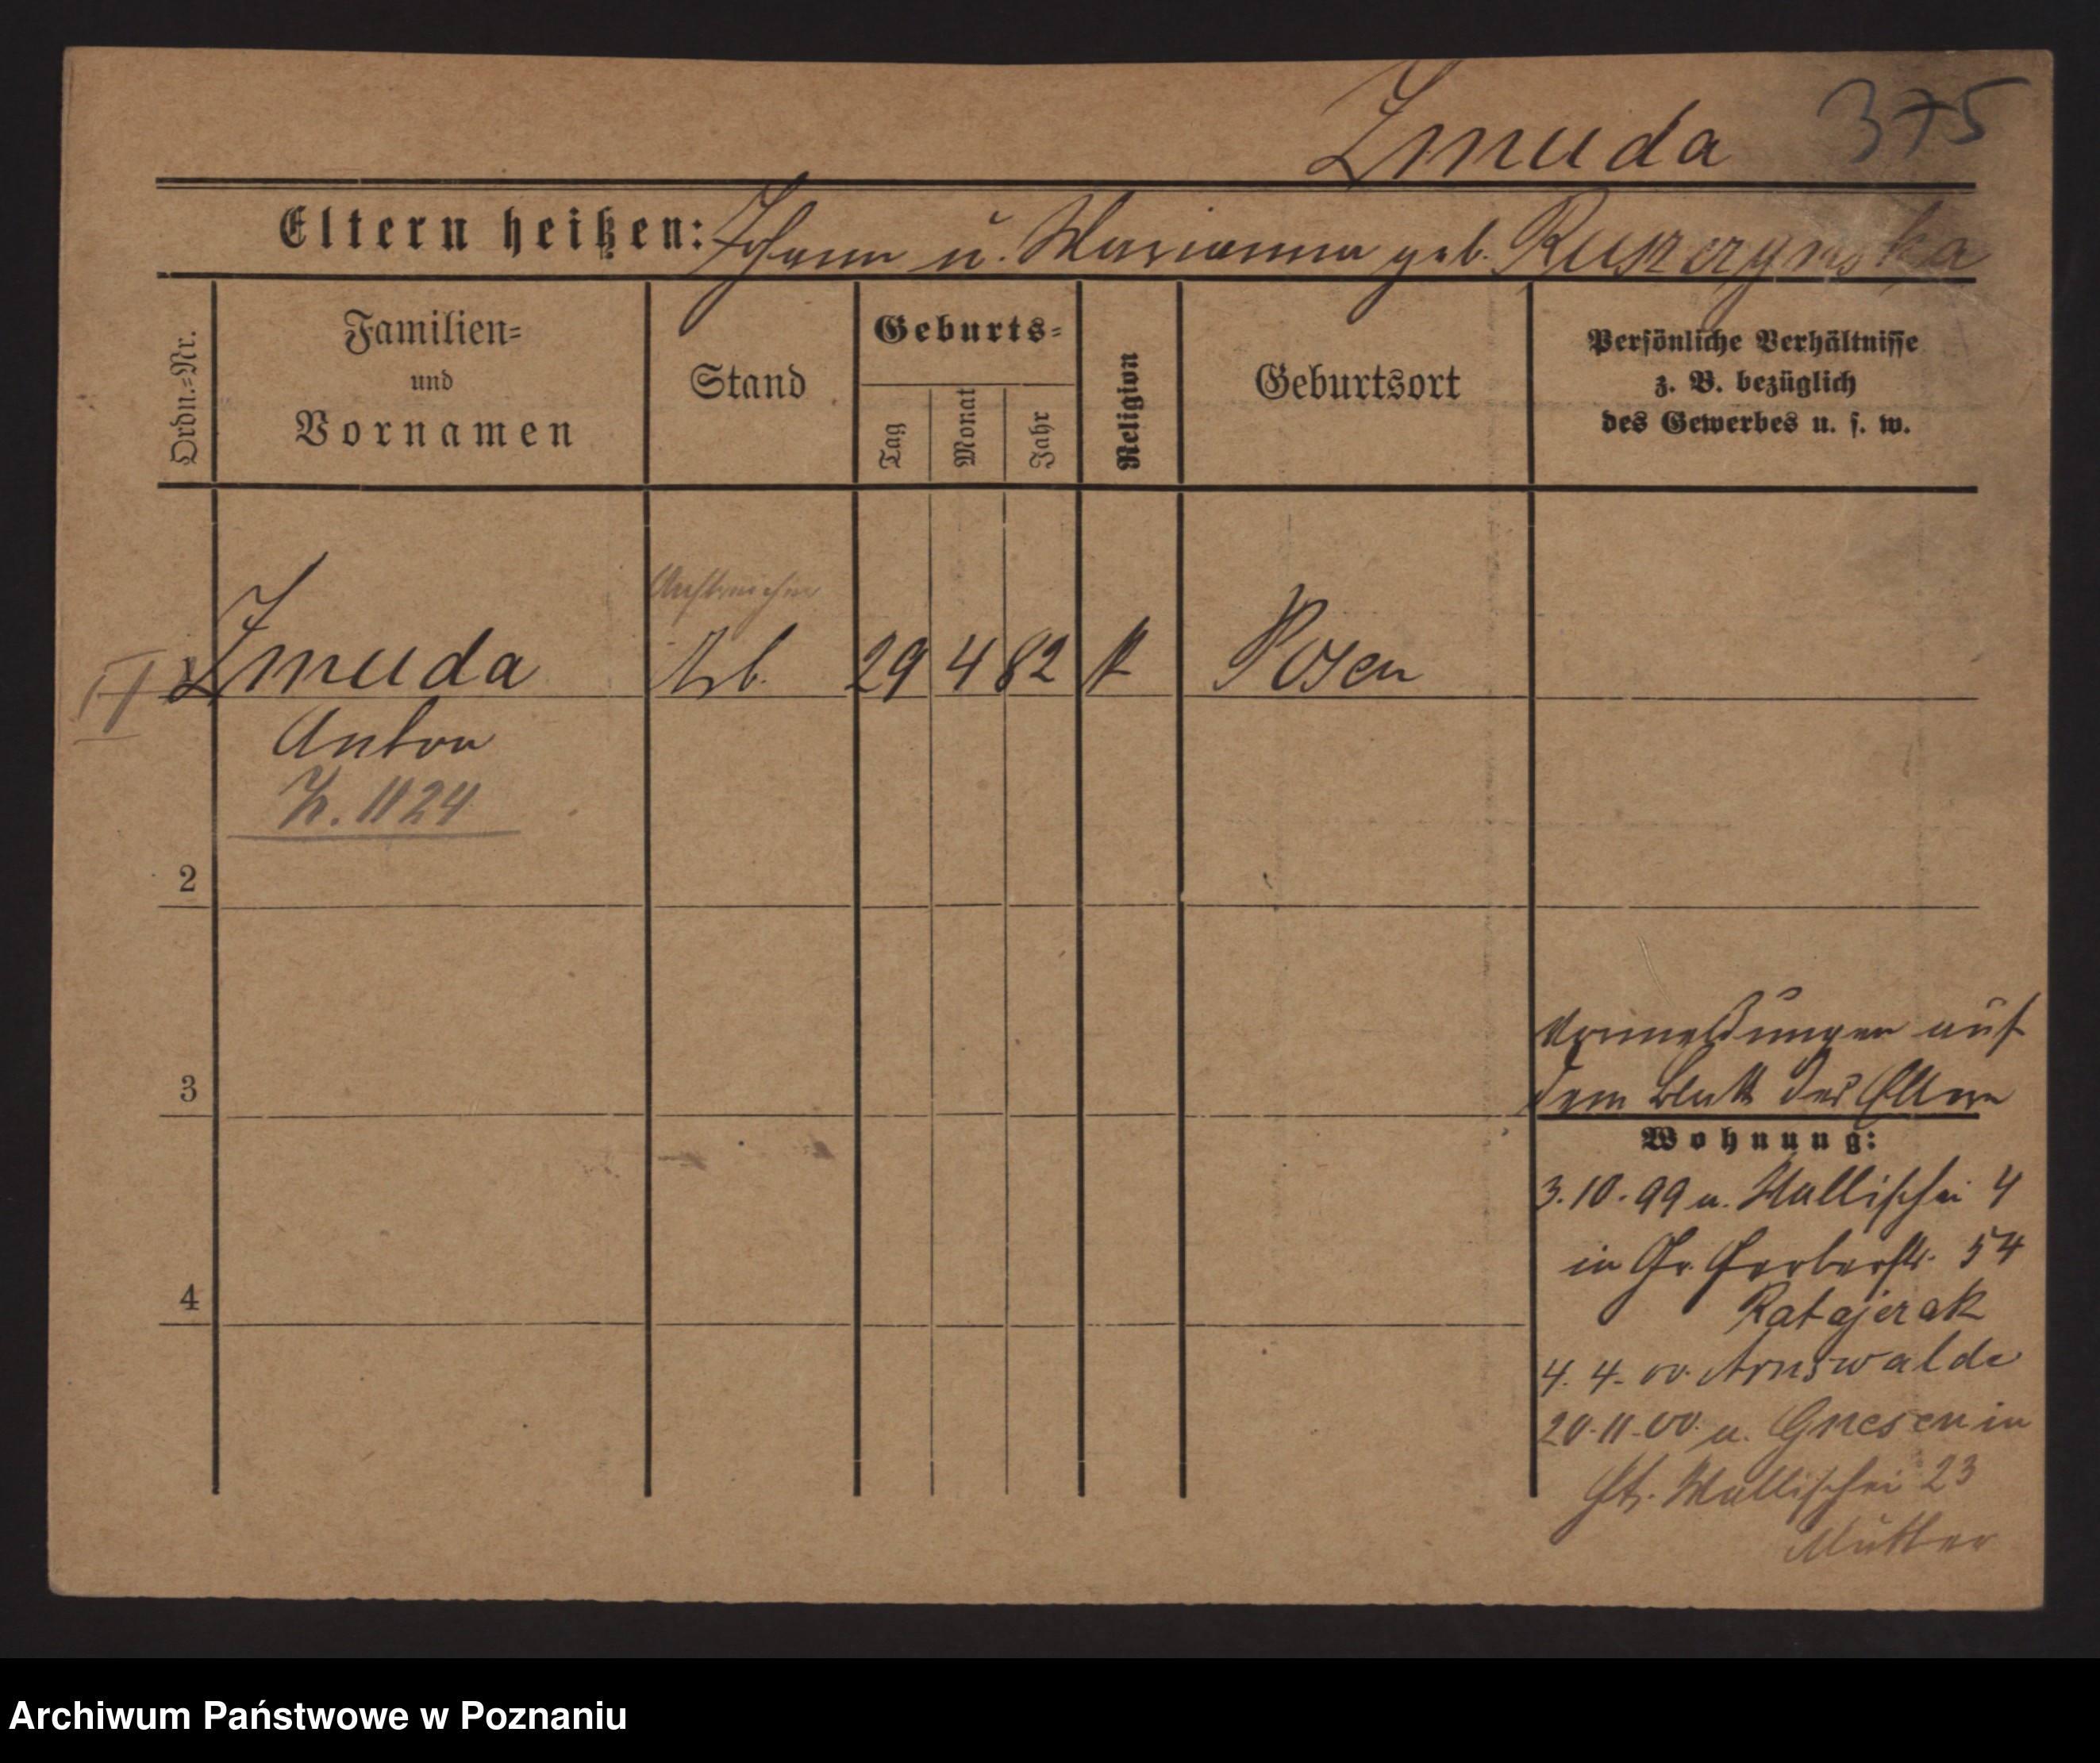 Zmuda 375
Eltern heißen: Johann u. Marianna geb. Ruszczynska
Ordn.=Nr.
Familien=
und
Vornamen
Stand
Geburts=
Tag
Monat
Jahr
Religion
Geburtsort
Persönliche Verhältnisse
z. B. bezüglich
des Gewerbes u. s. w.
Anstreicher
Zmuda Arb. 29 4 82 k Posen
Anton
1124
2
Vormeldungen auf
3 dem Blatt der Eltern
Wohnung:
3.10.99 a. Wallischei 4
in Gr. Gerberstr. 54
Ratajczak
4
4.4.00. Arnswalde
20.11.00. a. Gnesen in
Wallischei 23
Mutter
Archiwum Państwowe w Poznaniu